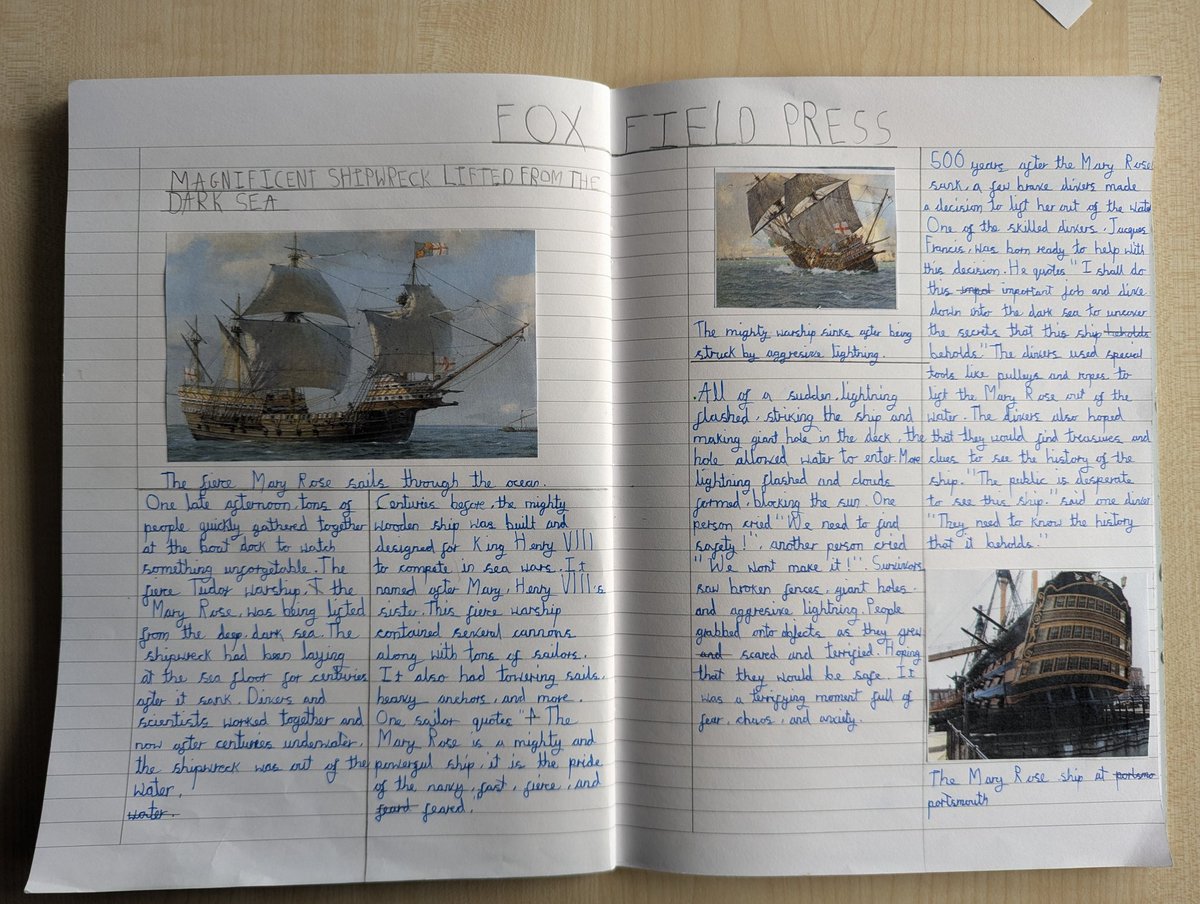 FOX FIELD PRESS
MAGNIFICENT SHIPWRECK LIFTED FROM THE
DARK SEA
The fierce Mary Rose sails through the ocean.
One late afternoon, tons of
people quickly gathered together
at the boat dock to watch
something unforgetable. The
fierce Tudor warship, the
Mary Rose, was being lifted
from the deep, dark sea. The
shipwreck had been laying
at the sea floor for centuries
after it sank. Divers and
scientists worked together and
now after centuries underwater,
the shipwreck was out of the
water.
water.
Centuries before, the mighty
wooden ship was built and
designed for King Henry VIII
to compete in sea wars. It
named after Mary, Henry VIII's
sister. This fierce warship
contained several cannons
along with tons of sailors.
It also had towering sails,
heavy anchors, and more.
One sailor quotes "The
Mary Rose is a mighty and
powerful ship, it is the pride
of the navy, fast, fierce, and
feard feared."
The mighty warship sinks after being
struck by aggresive lightning.
.All of a sudden, lightning
flashed, striking the ship and
making giant hole in the deck, the
hole allowed water to enter. More
lightning flashed and clouds
formed, blocking the sun. One
person cried "We need to find
safety!", another person cried
"We wont make it!" Survivors
saw broken fences, giant holes,
and aggresive lightning. People
grabbed onto objects as they grew
and scared and terrified. Hoping
that they would be safe. It
was a terrifying moment full of
fear, chaos, and anxiety.
500 years after the Mary Rose
sank, a few brave divers made
a decision to lift her out of the water
One of the skilled divers, Jacques
Francis, was born ready to help with
this decision. He quotes "I shall do
this impot important job and dive
down into the dark sea to uncover
the secrets that this ship beholds
beholds." The divers used special
tools like pulleys and ropes to
lift the Mary Rose out of the
water. The divers also hoped
that they would find treasures and
clues to see the history of the
ship. "The public is desperate
to see this ship." said one diver.
"They need to know the history
that it beholds."
The Mary Rose ship at portsmo
portsmouth